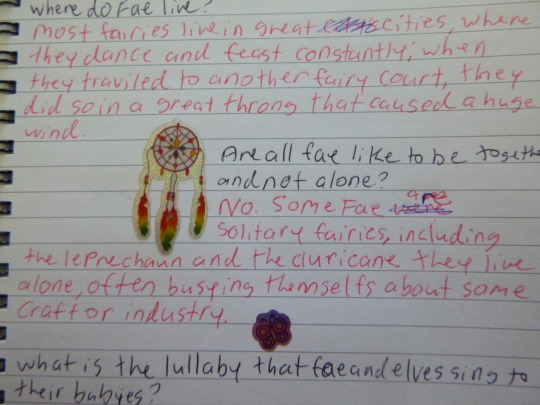 where do Fae live?
most fairies live in great cities, where
they dance and feast constantly; when
they traviled to another fairy court, they
did so in a great throng that caused a huge
wind.
Are all fae like to be togethe
and not alone?
No. Some Fae are
solitary fairies, including
the leprechaun and the cluricane. they live
alone, often busying themselfs about some
craft or industry.
what is the lullaby that fae and elves sing to
their babyies?